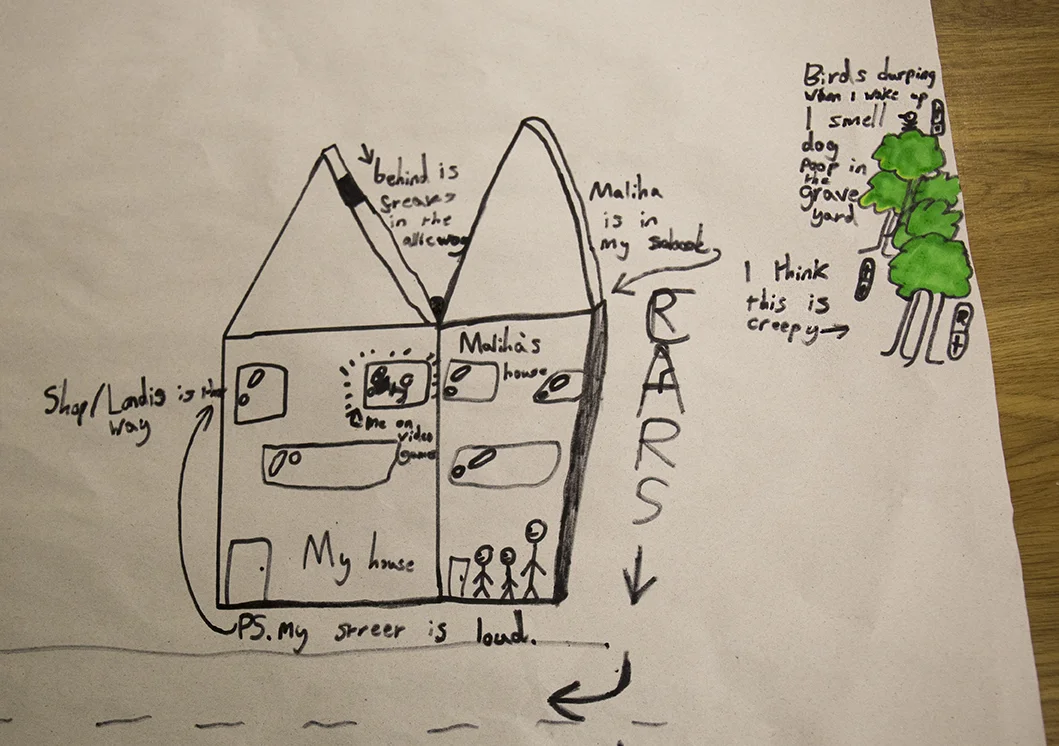 Birds durping
when I wake up
I smell
dog
poop in
the
grave
yard
behind is
in the
Maliha
is in
my
I think
this is
creepy
Maliha's
house
Shop/Landis is the
way
me on
video
games
R
A
R
S
My house
PS. My streer is loud.